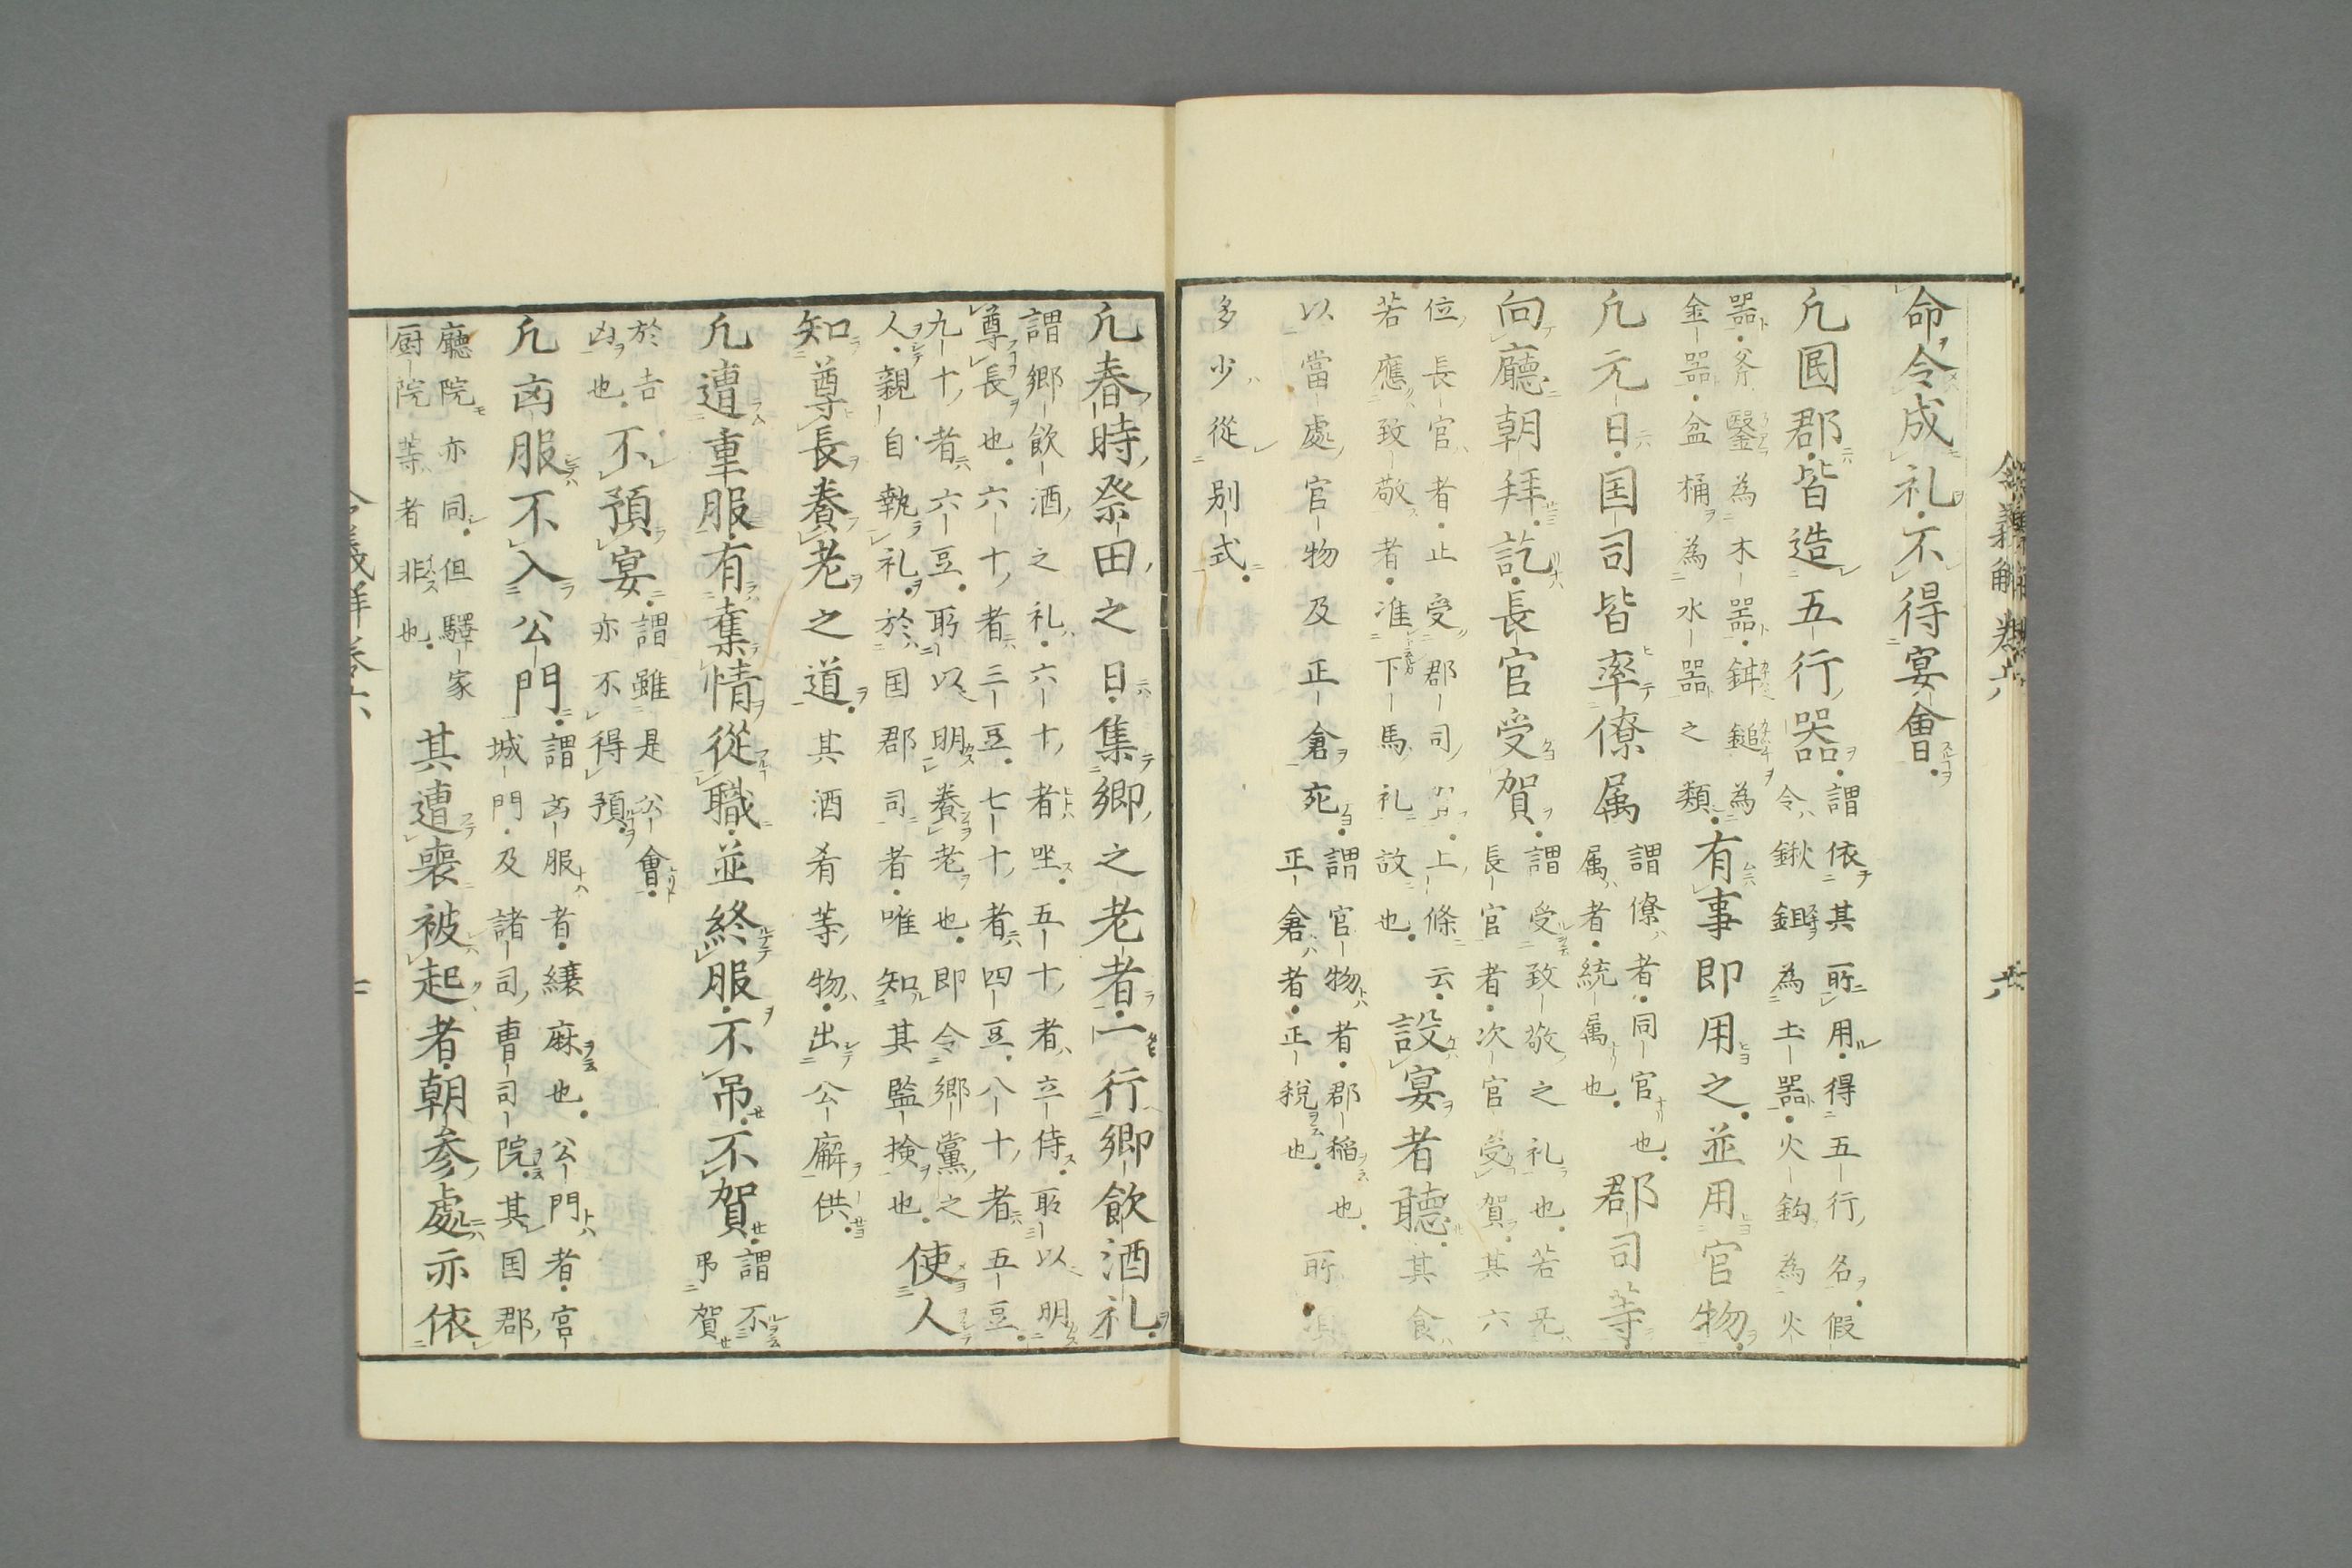 命令成礼不得宴會
凢囻郡皆造五行器謂依其所用得五行名假
令鍬鋤為土器火鈎為火
器斧鑿為木器鉡鎚為
金器盆桶為水器之類有事即用之並用官物
凢元日国司皆率僚属謂僚者同官也
属者統属也郡司等
向廳朝拜訖長官受賀謂受致敬之礼也若无
長官者次官受賀其六
位長官者止受郡司上條云
若應致敬者准下馬礼故也設宴者聴其食
以當處官物及正倉充謂官物者郡稲也
正倉者正税也所須
多少從别式
令義解卷六
六
凢春時祭田之日集郷之老者一行郷飲酒礼
謂郷飲酒之礼六十者坐五十者立侍所以明
尊長也六十者三豆七十者四豆八十者五豆
九十者六豆所以明養老也即令郷黨之
人親自執礼於国郡司者唯知其監検也使人
知尊長養老之道其酒肴等物出公廨供
凢遭重服有奪情從職並終服不吊不賀謂不
弔賀
於吉
凶也不預宴謂雖是公會
亦不得預
凢凶服不入公門謂凶服者縗麻也公門者宮
城門及諸司曹司院其国郡
廳院亦同但驛家
厨院等者非也其遭喪被起者朝参處亦依